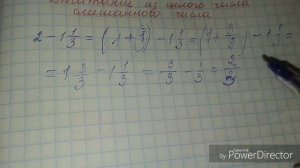 Вычитание из целого числа
смешанного числа
2 - 1 1/3 = (1 + 3/3) - 1 1/3 = (1 + 3/3) - 1 1/3 =
= 1 3/3 - 1 1/3 = 3/3 - 1/3 = 2/3
Made with
PowerDirector